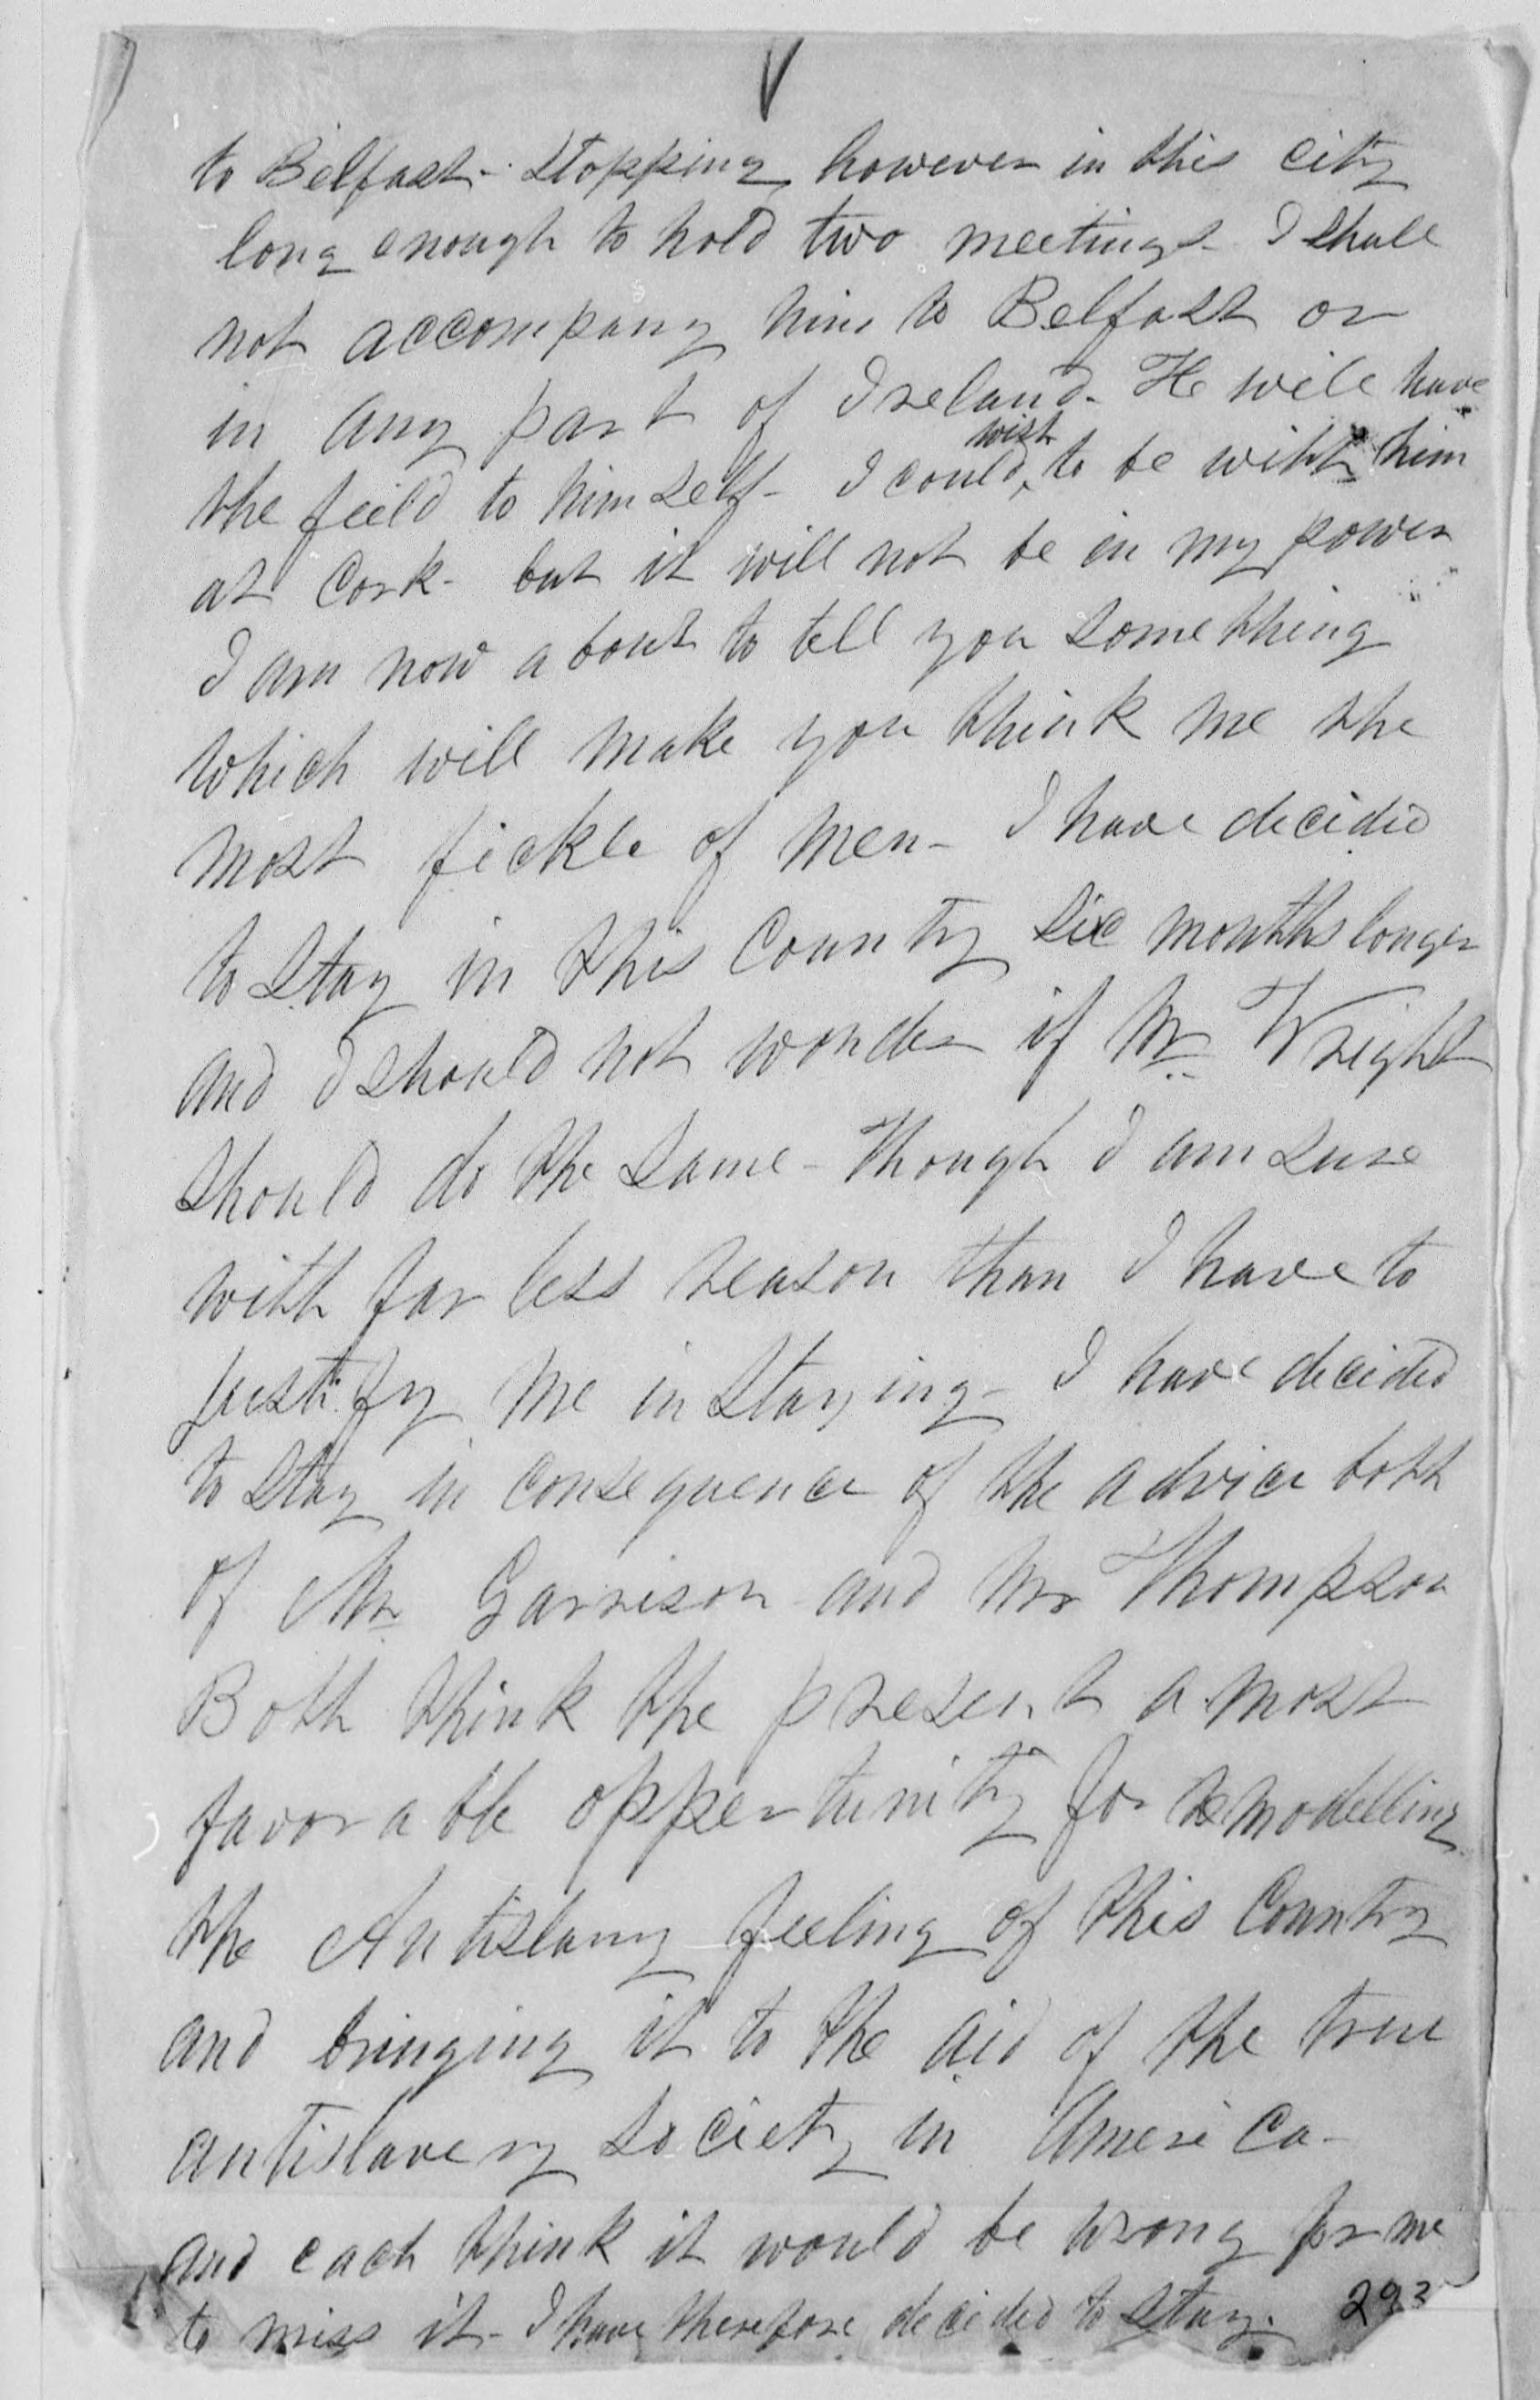 to Belfast - Stopping however in this city
long enough to hold two meetings - I shall
not accompany him to Belfast or
in any part of Ireland - He will have
wish
the feild to himself - I could to be with him
at Cork - but it will not be in my power
I am now about to tell you something
which will make you think me the
most fickle of men - I have decided
to stay in this County six months longer
and I should not wonder if Mr. Wright
should do the same - Though I am sure
with far less reason than I have to
justify me in staying - I have decided
to stay in consequence of the advice both
of Mr Garrison and Mr Thompson
Both think the present a most
favorable oppertunity for remodelling
the Antislavry feeling of this Country
and bringing it to the aid of the true
antislavery society in America -
and each think it would be wrong for me
to miss it - I have therefore decided to stay.
293